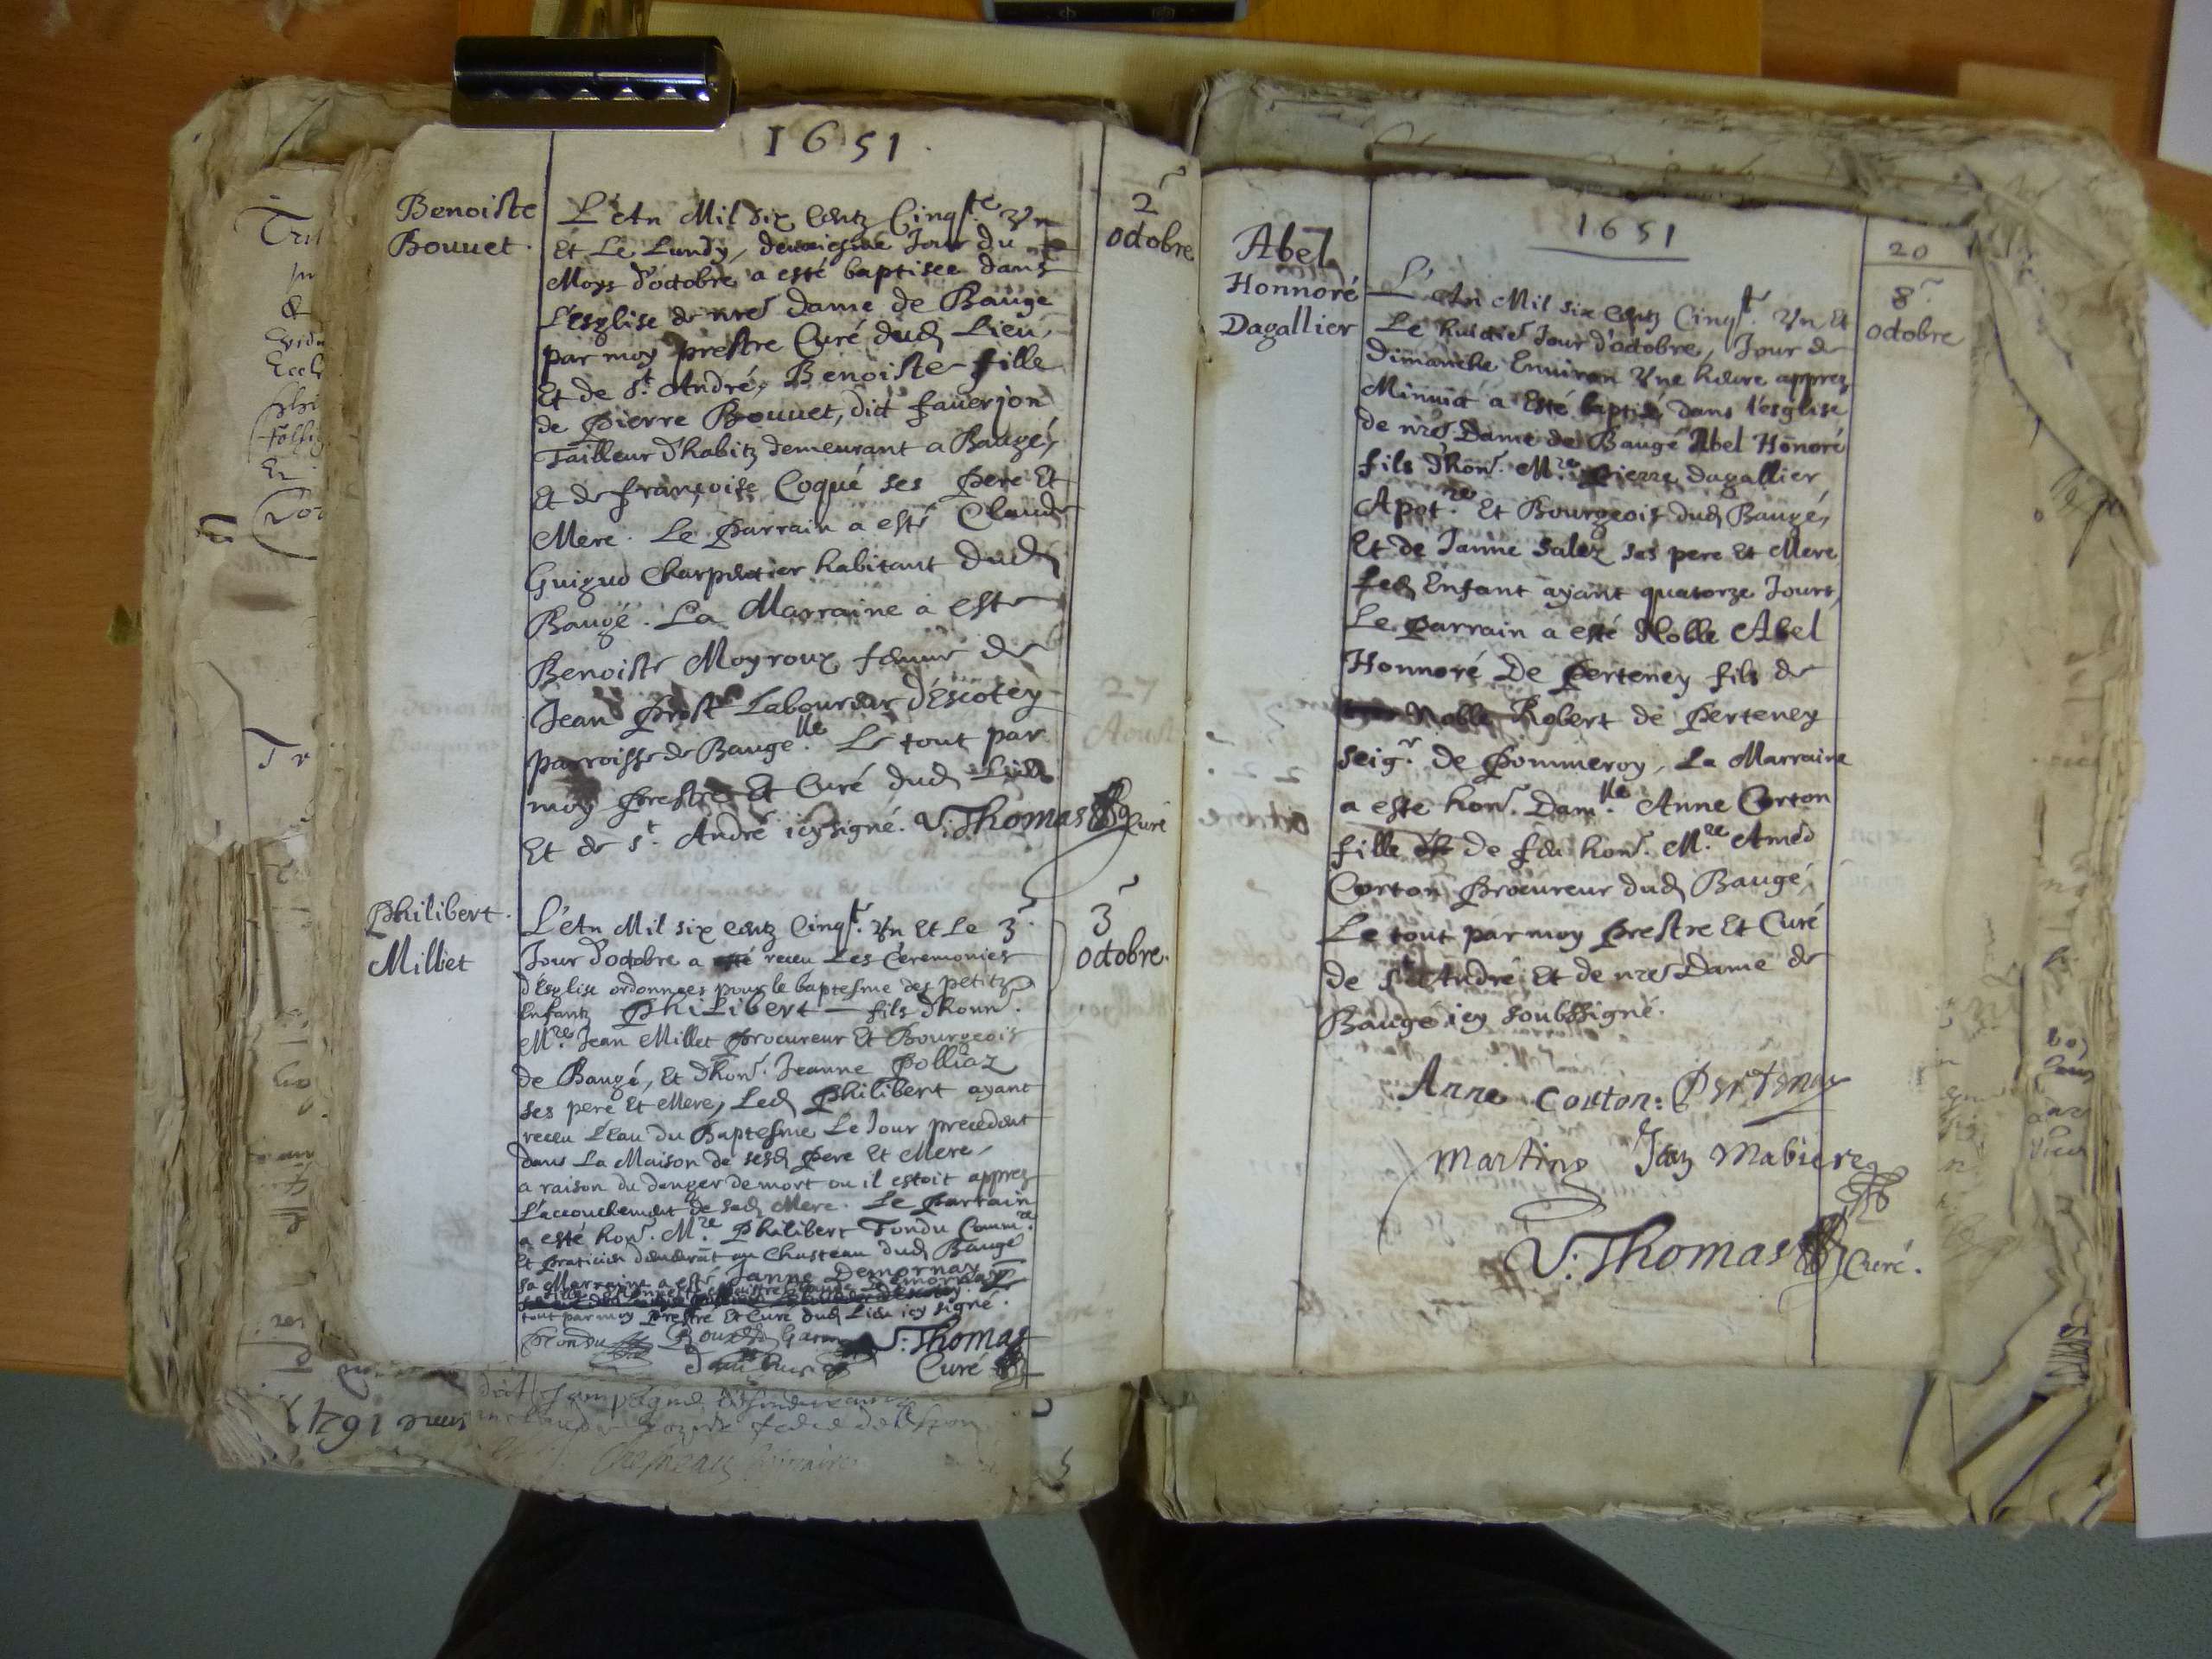 1651
Benoiste
Bouuet.
2
octobre
L'An Mil six centz Cinq.te Vn
Et Le Lundy, deuxiesme Jour du
Moys d'octobre a esté baptisee dans
L'esglise de nre Dame de Baugé
par moy prestre Curé dud Lieu,
Et de St. André, Benoiste fille
de Pierre Bouuet, dit fauerjon
Tailleur d'habitz demeurant a Baugé,
Et de françoise Coqué ses Pere Et
Mere. Le Parrain a esté Claude
Guigud Charpentier habitant dud
Baugé. La Marraine a esté
Benoiste Moyroux femme de
Jean Prost Laboureur d'Escotey
parroisse de Baugé. Le tout par
moy Prestre Et Curé dud Lieu
Et de St. André icy signé. V. Thomas Curé
Philibert.
Milliet
3
octobre.
L'An Mil six centz Cinqt. Vn Et Le 3
Jour d'octobre a esté receu Les Ceremonies
d'Esglise ordonnees pour le baptesme des petitz
Enfantz Philibert fils d'honn.
Mre. Jean Millet Procureur Et Bourgeois
de Baugé, Et d'honr. Jeanne Polliaz
ses pere Et Mere, Led Philibert ayant
receu L'eau du Baptesme Le Jour precedent
dans La Maison de sesd Pere Et Mere,
a raison du danger de mort ou il estoit apprez
L'accouchement de sad Mere. Le Parrain
a esté honr. Mre Philibert Tondu Comm.re
Et Praticien demeurant au Chasteau dud Baugé
sa Marraine a esté Janne Demornay
tout par moy Prestre Et Curé dud Lieu icy signé.
V. Thomas
Curé
1651
20
Abel
Honnoré
Dagallier
8
octobre
L'An Mil six Centz Cinqt. Vn Et
Le huictie Jour d'octobre, Jour de
Dimanche Enuiron Vne heure apprez
Minuict a Esté baptisé dans l'esglise
de nre Dame de Baugé Abel Honoré
fils d'honr. Mre. Pierre Dagallier
Apot.re Et Bourgeois dud Baugé,
Et de Janne Salez ses pere Et Mere
led Enfant ayant quatorze Jours,
Le Parrain a esté Noble Abel
Honnoré De Perteney fils de
Noble Robert de Perteney
seigr. de Pommeroy, La Marraine
a esté honr. Dam.lle Anne Corton
fille de feu honr. Mre Amed
Corton Procureur dud Baugé,
Le tout par moy Prestre Et Curé
de St André Et de nre Dame de
Baugé icy soubssigné.
Anne Corton: Perteney
Martins Mabiere
V. Thomas Curé.